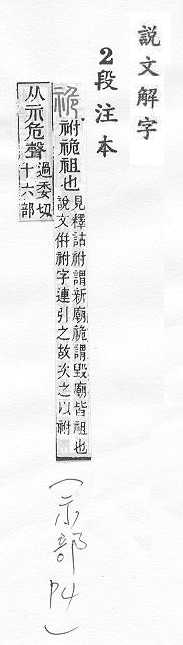 說文解字
2段注本
祪
祔祪祖也
見釋詁祔謂新廟祪謂毀廟皆祖也
說文倂祔字連引之故次之以祔
从示危聲
過委切
十六部
(示部P4)